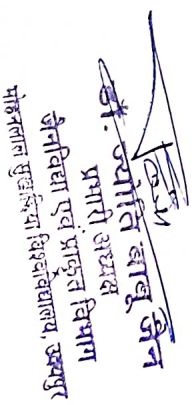 डॉ. ज्योति बाबू जैन
प्रभारी अध्यक्ष
जैनविद्या एवं प्राकृत विभाग
मोहनलाल सुखाड़िया विश्वविद्यालय, उदयपुर